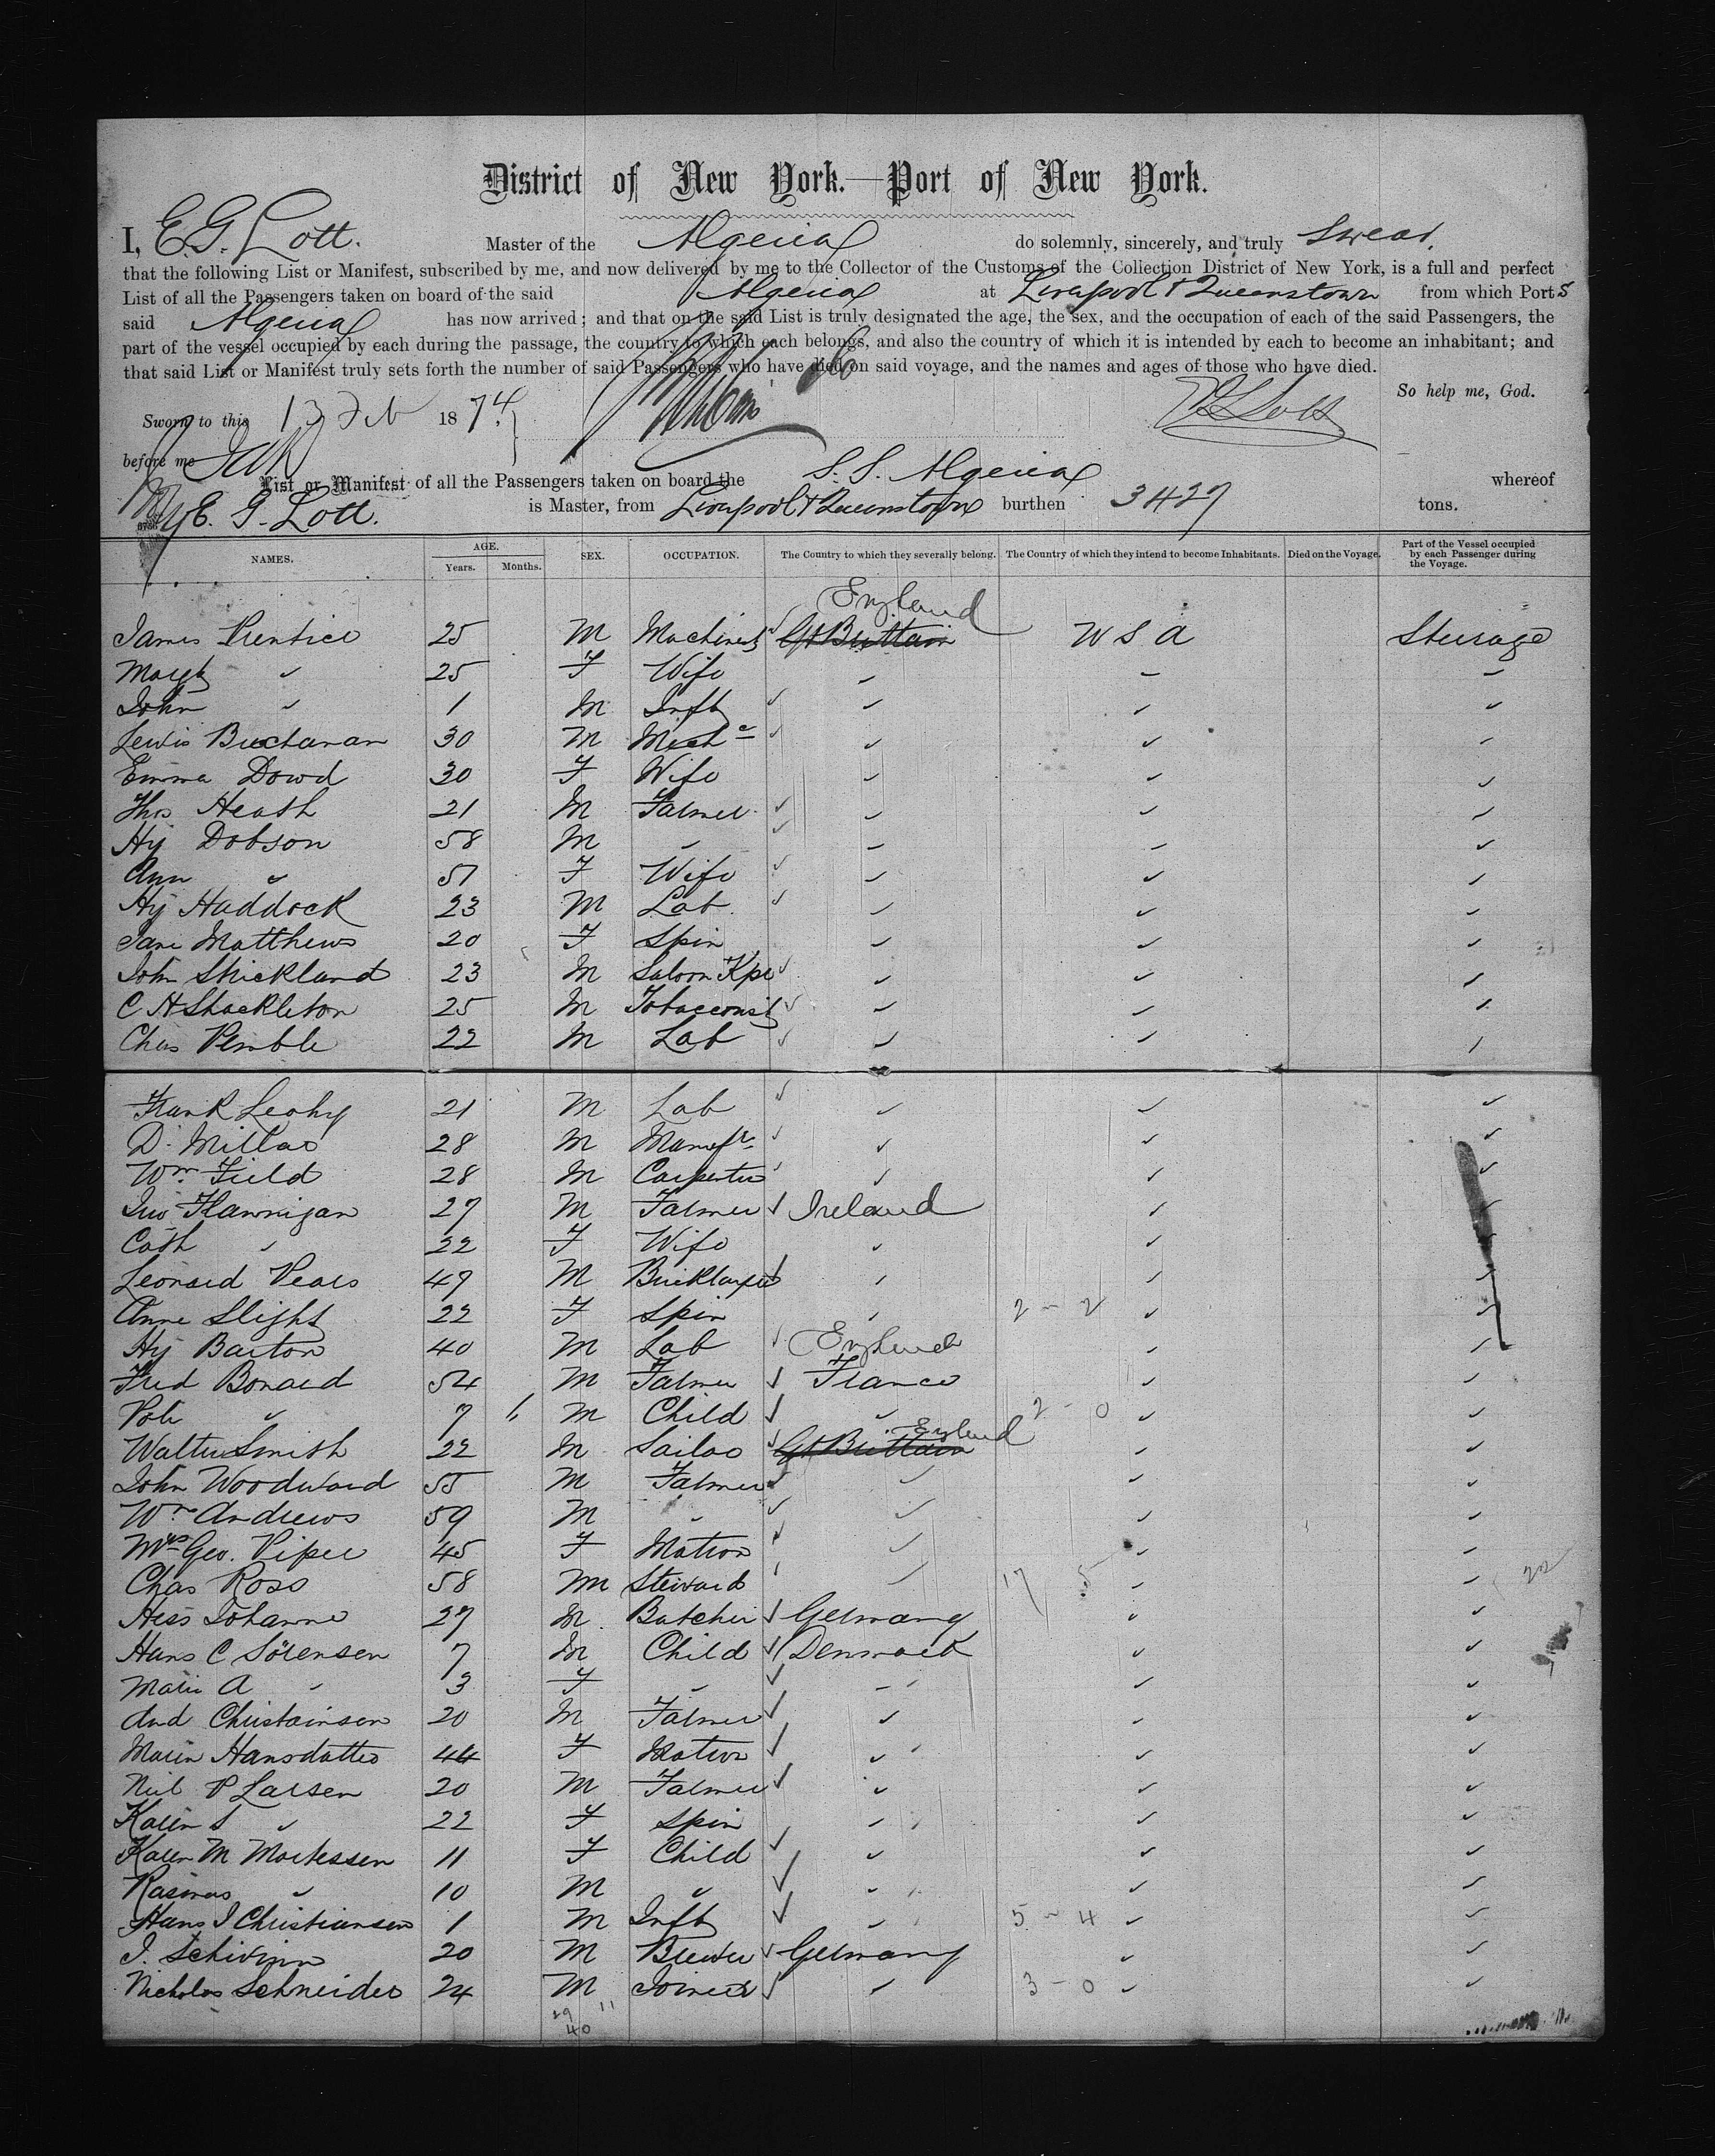 District of New York.—Port of New York.
I, E. G. Lott. Master of the Algeria do solemnly, sincerely, and truly Swear,
that the following List or Manifest, subscribed by me, and now delivered by me to the Collector of the Customs of the Collection District of New York, is a full and perfect
List of all the Passengers taken on board of the said Algeria at Liverpool & Queenstown from which Ports
said Algeria has now arrived; and that on the said List is truly designated the age, the sex, and the occupation of each of the said Passengers, the
part of the vessel occupied by each during the passage, the country to which each belongs, and also the country of which it is intended by each to become an inhabitant; and
that said List or Manifest truly sets forth the number of said Passengers who have died on said voyage, and the names and ages of those who have died.
So help me, God.
Sworn to this 13 Feb 1874. E G Lott
before me
List or Manifest of all the Passengers taken on board the S. S. Algeria whereof
E. G. Lott. is Master, from Liverpool & Queenstown burthen 3427 tons.
NAMES. AGE. Years. Months. SEX. OCCUPATION. The Country to which they severally belong. The Country of which they intend to become Inhabitants. Died on the Voyage. Part of the Vessel occupied by each Passenger during the Voyage.
England
James Prentice 25 M Machinest Gt Brittain U S A Steerage
Margt " 25 F Wife
John " 1 M Inft
Lewis Buchanan 30 M Mechc
Emma Dowd 30 F Wife
Thos Heath 21 M Farmer
Hy Dobson 58 M "
Ann " 51 F Wife
Hy Haddock 23 M Lab
Jane Matthews 20 F Spin
John Strickland 23 M Saloon Kpr
C H Shackleton 25 M Tobacconist
Chas Pemble 22 M Lab
Frank Leahy 21 M Lab
D. Millar 28 M Manufr
Wm Field 28 M Carpenter
Jno Flannigan 27 M Farmer Ireland
Cath " 22 F Wife
Leonard Pears 49 M Bricklayer
Anne Slight 22 F Spin 2 - 2
Hy Barton 40 M Lab England
Fred Bonard 54 M Farmer France
" 7 M Child " 2 - 0
Walter Smith 22 M Sailor Gt Brittain England
John Woodward 55 M Farmer
Wm Andrews 59 M "
Mrs Geo. Piper 45 F Matron
Chas Ross 58 M Steward 17 5 22
Hess Johanne 27 M Butcher Germany
Hans C Sörensen 7 M Child Denmark
Marie A " 3 F "
And Christainsen 20 M Farmer
Maren Hansdatter 44 F Matron
Niel P Larsen 20 M Farmer
Karen S " 22 F Spin
Karen M Mortessen 11 F Child
Rasmus " 10 M "
Hans J Christiansen 1 M Inft 5 - 4
20 M Brewer Germany
Nicholas Schneider 24 M Joiner 3 - 0
29 11
40